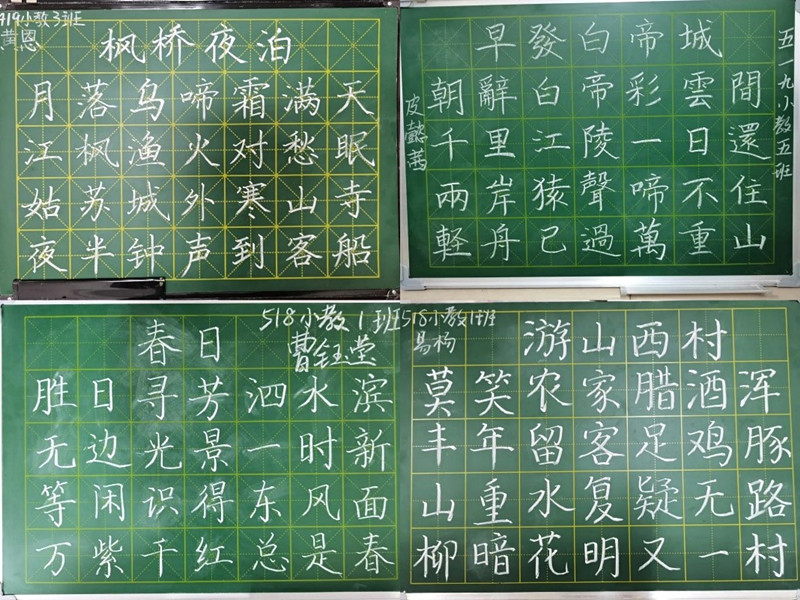 419小教3班
黄恩
枫桥夜泊
月落乌啼霜满天
江枫渔火对愁眠
姑苏城外寒山寺
夜半钟声到客船
早發白帝城
五一九小教五班
皮懿茜
朝辭白帝彩雲間
千里江陵一日還
兩岸猿聲啼不住
軽舟已過萬重山
518小教1班
曹钰堂
春日
胜日寻芳泗水滨
无边光景一时新
等闲识得东风面
万紫千红总是春
518小教1班
易杨
游山西村
莫笑农家腊酒浑
丰年留客足鸡豚
山重水复疑无路
柳暗花明又一村